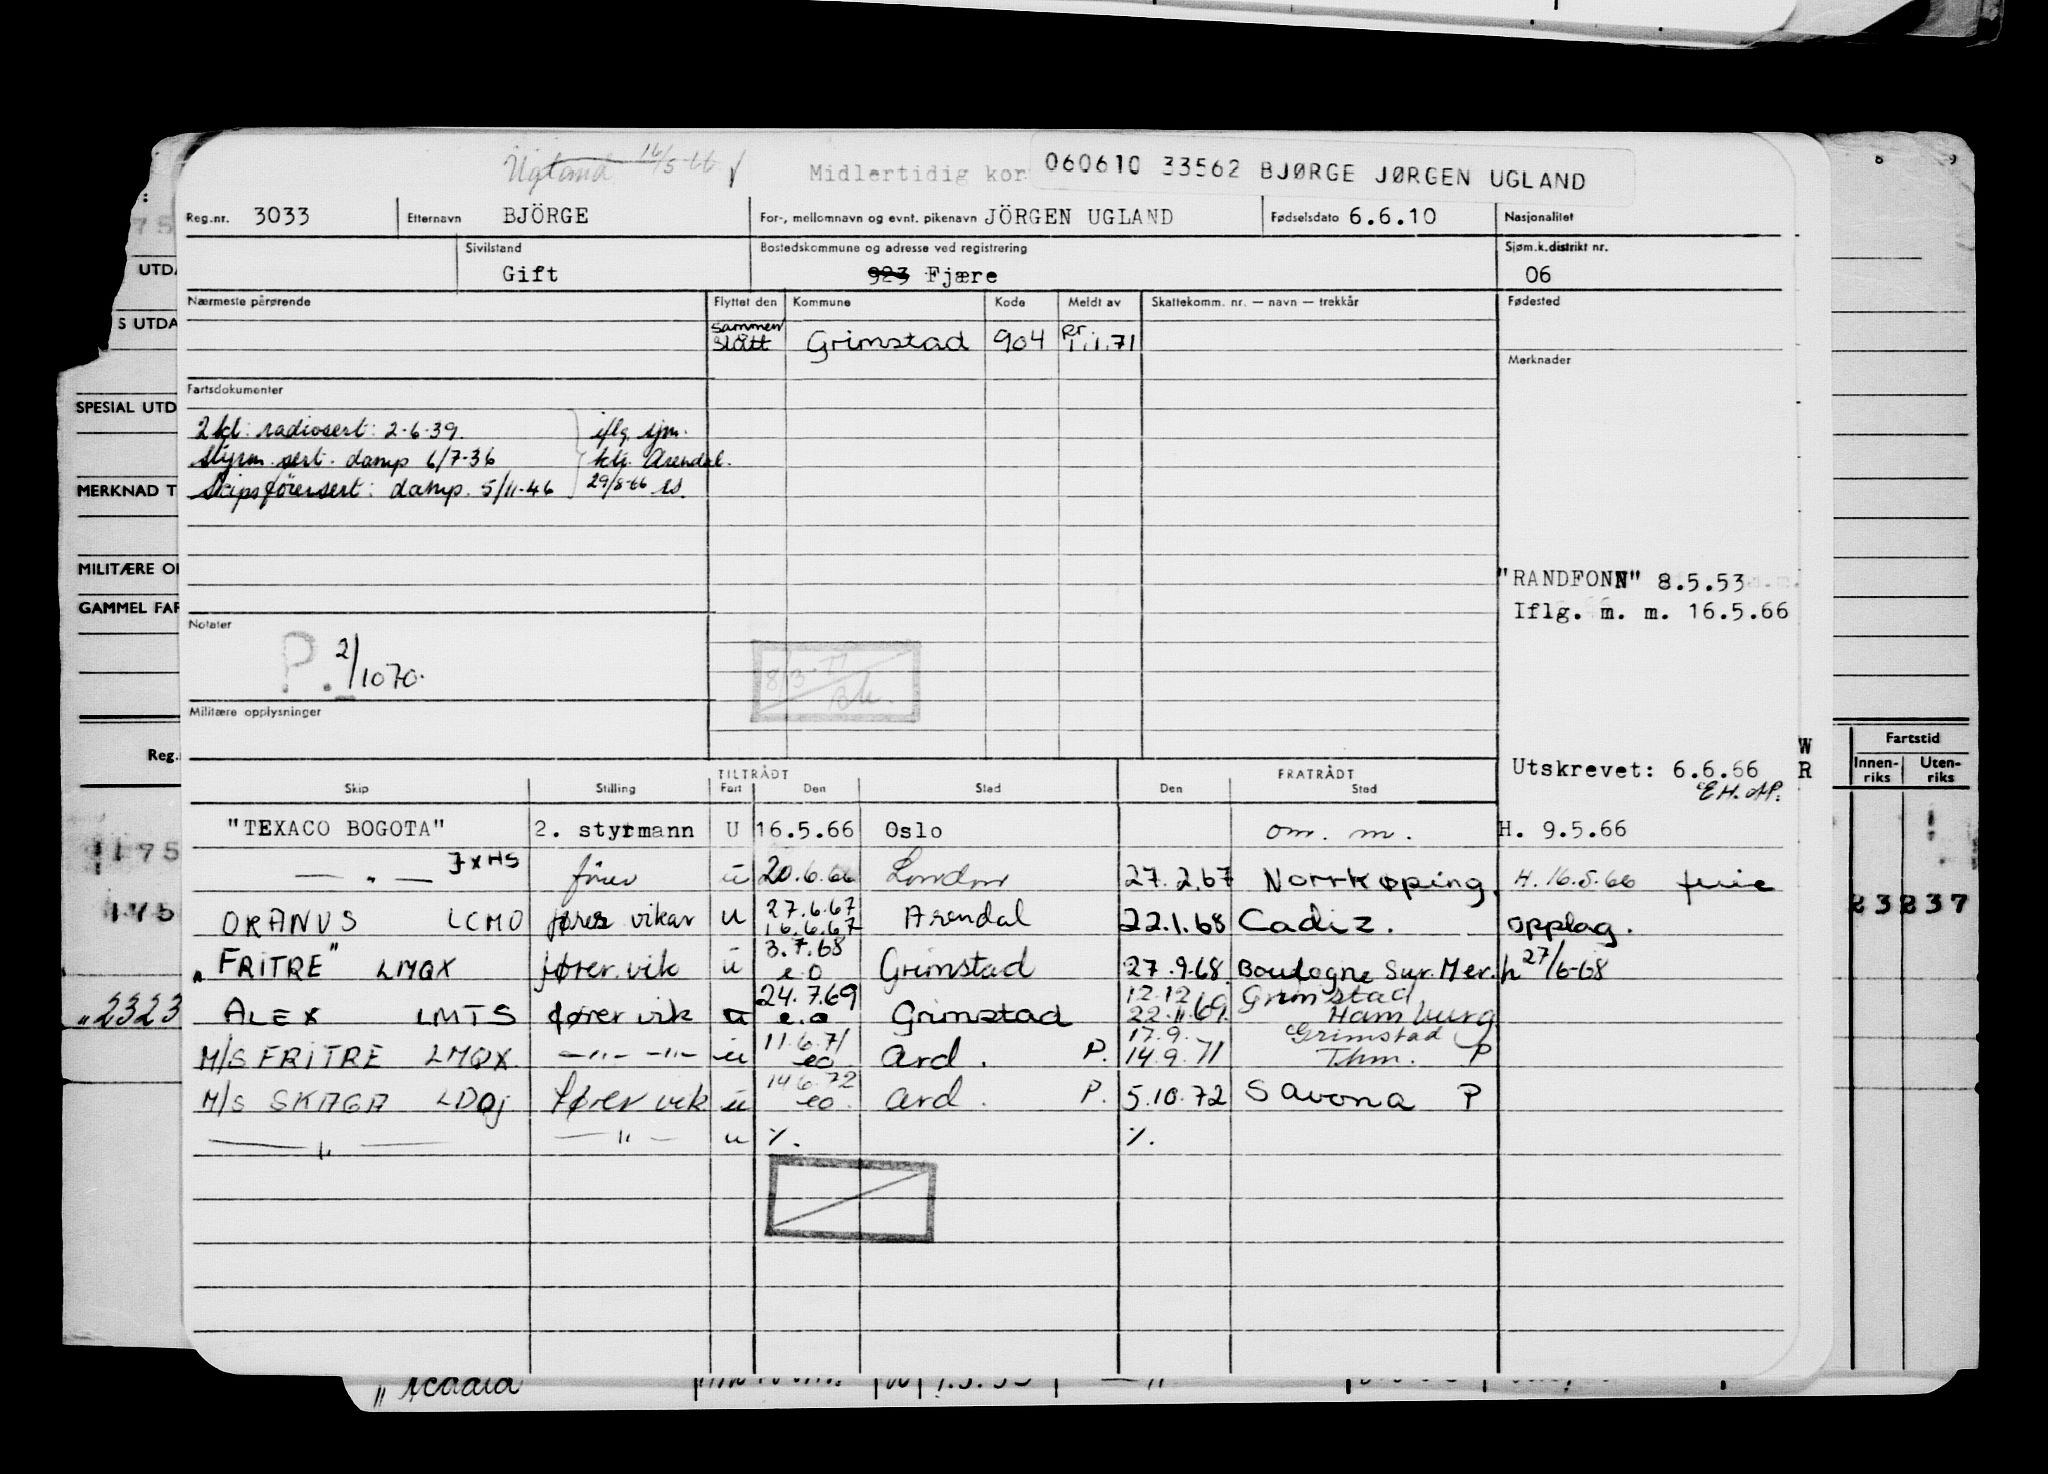 Ugland 16/5-66
Midlertidig kor 060610 33562 BJØRGE JØRGEN UGLAND
Reg.nr. 3033 Etternavn BJÖRGE For-, mellomnavn og evnt. pikenavn JÖRGEN UGLAND Fødselsdato 6.6.10 Nasjonalitet
Sivilstand Gift Bostedskommune og adresse ved registrering 923 Fjære Sjøm.k.distrikt nr. 06
Nærmeste pårørende Flyttet den Kommune Kode Meldt av Skattekomm. nr. — navn — trekkår Fødested
sammen slått Grimstad 904 pr. 1.1.71
Merknader
Fartsdokumenter
2 kl: radiosert: 2-6-39. iflg. sjm.
styrm. sert. damp 6/7-36 ktr. Arendal.
Skipsförersert: damp. 5/11-46 29/8-66
"RANDFONN" 8.5.53
Iflg. m. m. 16.5.66
Notater
P. 2/1070.
8/3-77
Militære opplysninger
Utskrevet: 6.6.66
TILTRÅDT FRATRÅDT
Skip Stilling Fart Den Sted Den Sted
"TEXACO BOGOTA" 2. styrmann U 16.5.66 Oslo om. m. H. 9.5.66
— " — JXHS förer u 20.6.66 London 27.2.67 Norrkøping. H. 16.5.66
ORANUS LCMO fører vikar u 27.6.67 16.6.67 Arendal 22.1.68 Cadiz. opplag.
"FRITRE" LMQX fører. vik u 3.7.68 e.o Grimstad 27.9.68 Boulogne Sur. Mer. h 27/6-68
ALEX LMTS fører vik u 24.7.69 e.o Grimstad 12.12 22.11.69 Grimstad Hamburg
M/S FRITRE LMQX. —"— —"— u 11.6.71 eo Ard. P. 17.9. 14.9.71 Grimstad Thm. P
M/S SKAGA LDQj fører vik u 14.6.72 eo. Ard. P. 5.10.72 Savona P
— " — — " — u %. %.
UTDA
S UTDA
SPESIAL UTD
MERKNAD T
MILITÆRE O
GAMMEL FAR
Reg.
175
"2323
W
R
Fartstid
Innen-riks Uten-riks
23237